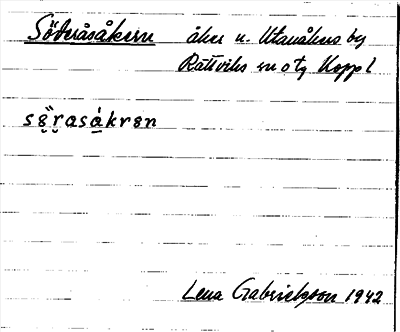 Söderåsåkern åker u. Utanåkers by
Rättviks sn o tg Koppl
sö̀rasákrən
Lena Gabrielsson 1942